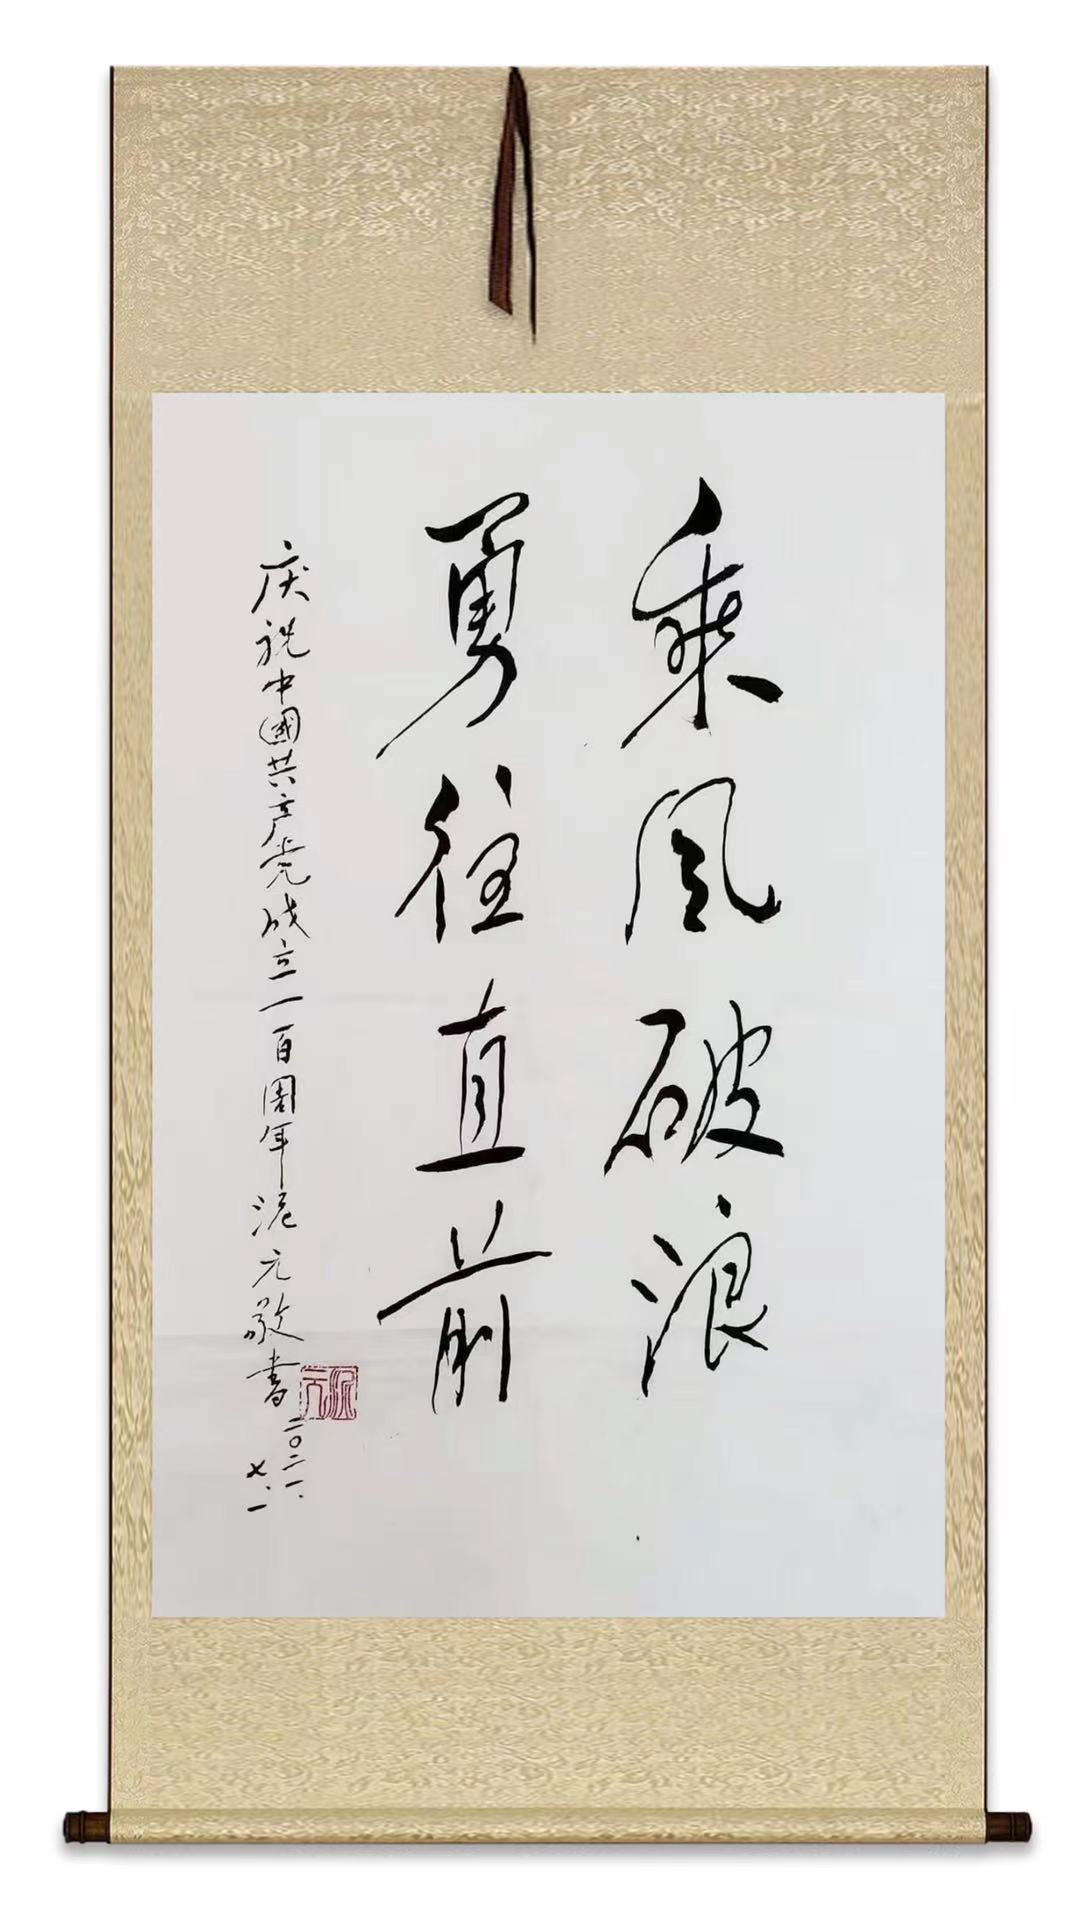 乘风破浪
勇往直前
庆祝中國共产党成立一百周年泥元敬書
二〇二一.
七.一
泥元